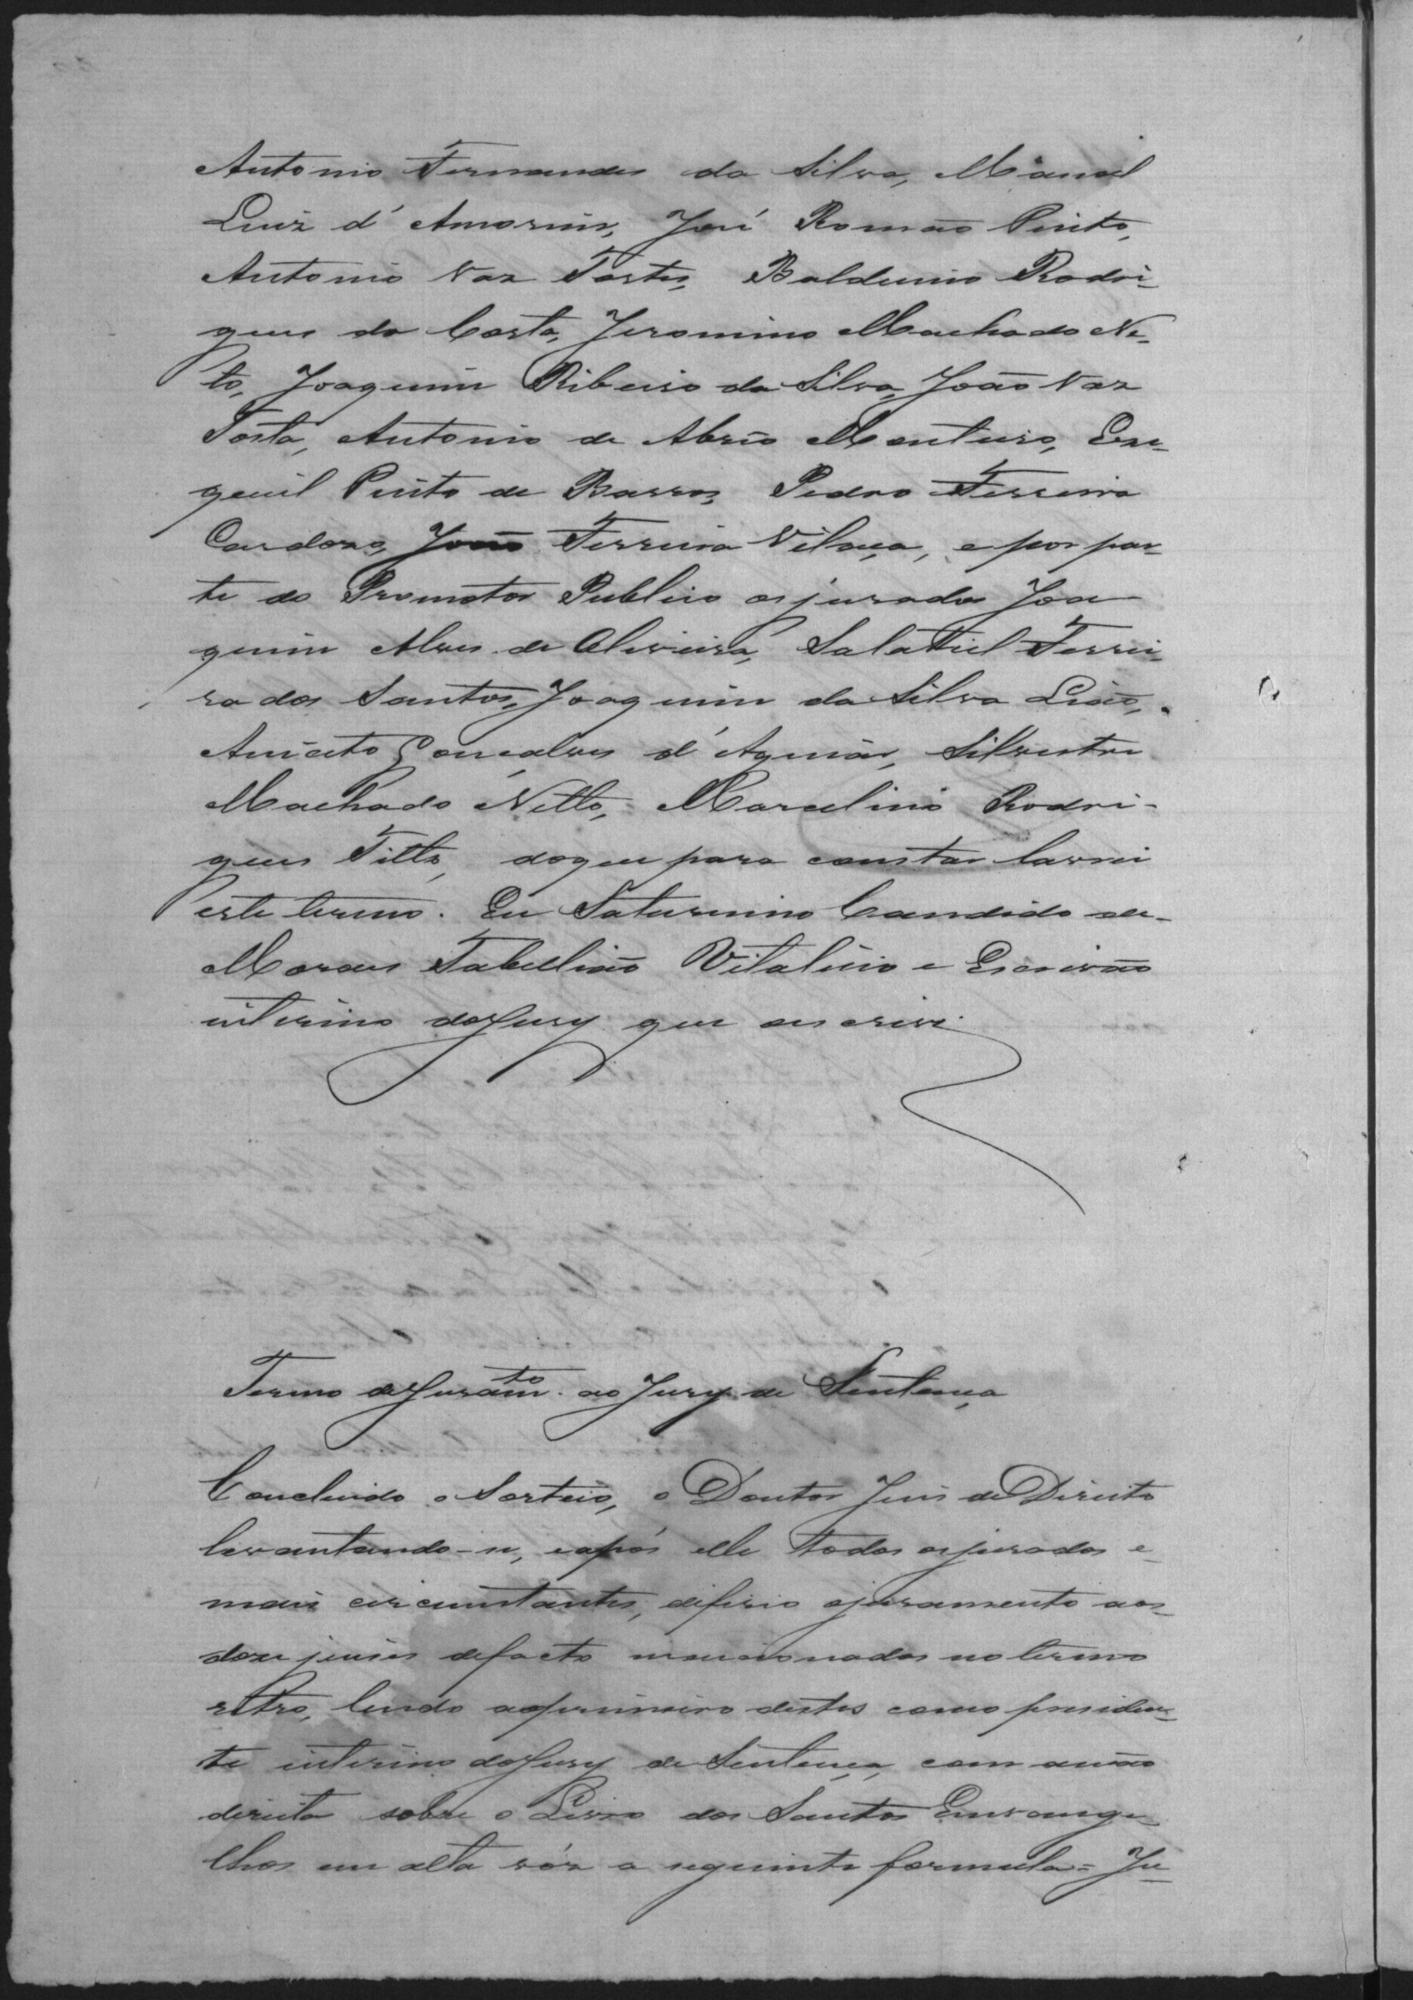 Antonio Fernandes da Silva, Manoel
Luiz d'Amorim, José Romão Pinto,
Antonio Vaz Tostes, Balduino Rodri-
gues da Costa, Jeronimo Machado Ne-
to, Joaquim Ribeiro da Silva, João Vaz
Tosta, Antonio de Abrêo Monturo, Eze-
quiel Pinto de Barros, Pedro Ferreira
Cardozo, João Ferreira Vilaça, e por par-
te do Promotor Publico os jurados Joa-
quim Alves de Oliveira, Salatiel Ferrei-
ra dos Santos, Joaquim da Silva Leão,
Aniceto Gonçalves d'Aguiar, Silvestre
Machado Netto, Marcelino Rodri-
gues , doque para constar lavrei
este termo. Eu Saturnino Candido de
Moraes Tabellião Vitalicio e Escrivão
interino do Jury que escrevi
Termo de Juramto. ao Jury de Sentença
Concluido o Sorteio, o Doutor Juis de Direito
levantando-se, e após elle todos os jurados e
mais circunstantes, diferio o juramento aos
doze juises de facto mencionados no termo
retro, lendo o primeiro destes como presiden-
te interino do Jury de Sentença, com a mão
direita sobre o Livro dos Santos Envange-
lhos em alta vóz a seguinte formula= Ju-